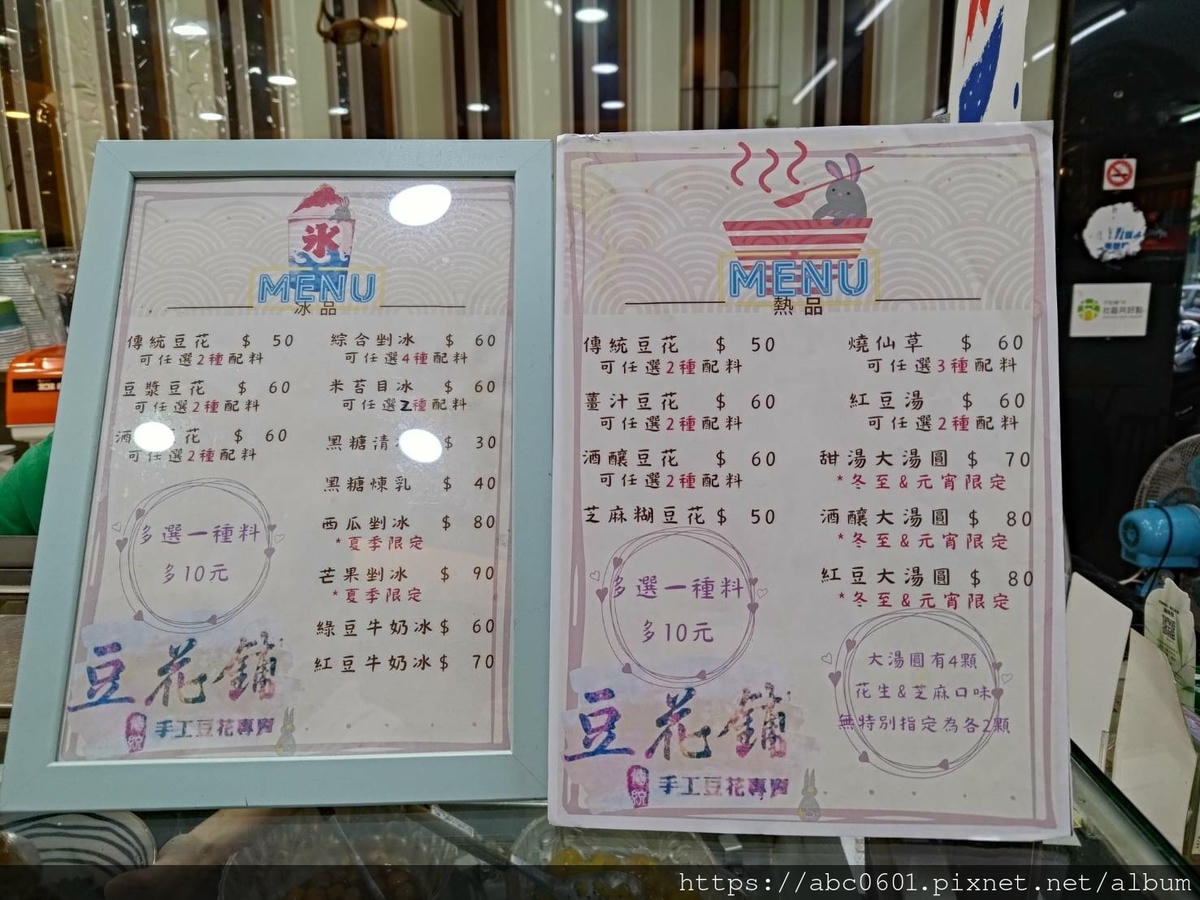 氷
MENU
冰品
傳統豆花 $ 50
可任選2種配料
豆漿豆花 $ 60
可任選2種配料
酒 花 $ 60
可任選2種配料
多選一種料
多10元
綜合剉冰 $ 60
可任選4種配料
米苔目冰 $ 60
可任選2種配料
黑糖清 $ 30
黑糖煉乳 $ 40
西瓜剉冰 $ 80
*夏季限定
芒果剉冰 $ 90
*夏季限定
綠豆牛奶冰 $ 60
紅豆牛奶冰 $ 70
豆花舖
傳說 手工豆花專賣
MENU
熱品
傳統豆花 $ 50
可任選2種配料
薑汁豆花 $ 60
可任選2種配料
酒釀豆花 $ 60
可任選2種配料
芝麻糊豆花 $ 50
多選一種料
多10元
燒仙草 $ 60
可任選3種配料
紅豆湯 $ 60
可任選2種配料
甜湯大湯圓 $ 70
*冬至&元宵限定
酒釀大湯圓 $ 80
*冬至&元宵限定
紅豆大湯圓 $ 80
*冬至&元宵限定
大湯圓有4顆
花生&芝麻口味
無特別指定為各2顆
豆花舖
傳說 手工豆花專賣
https://abc0601.pixnet.net/album